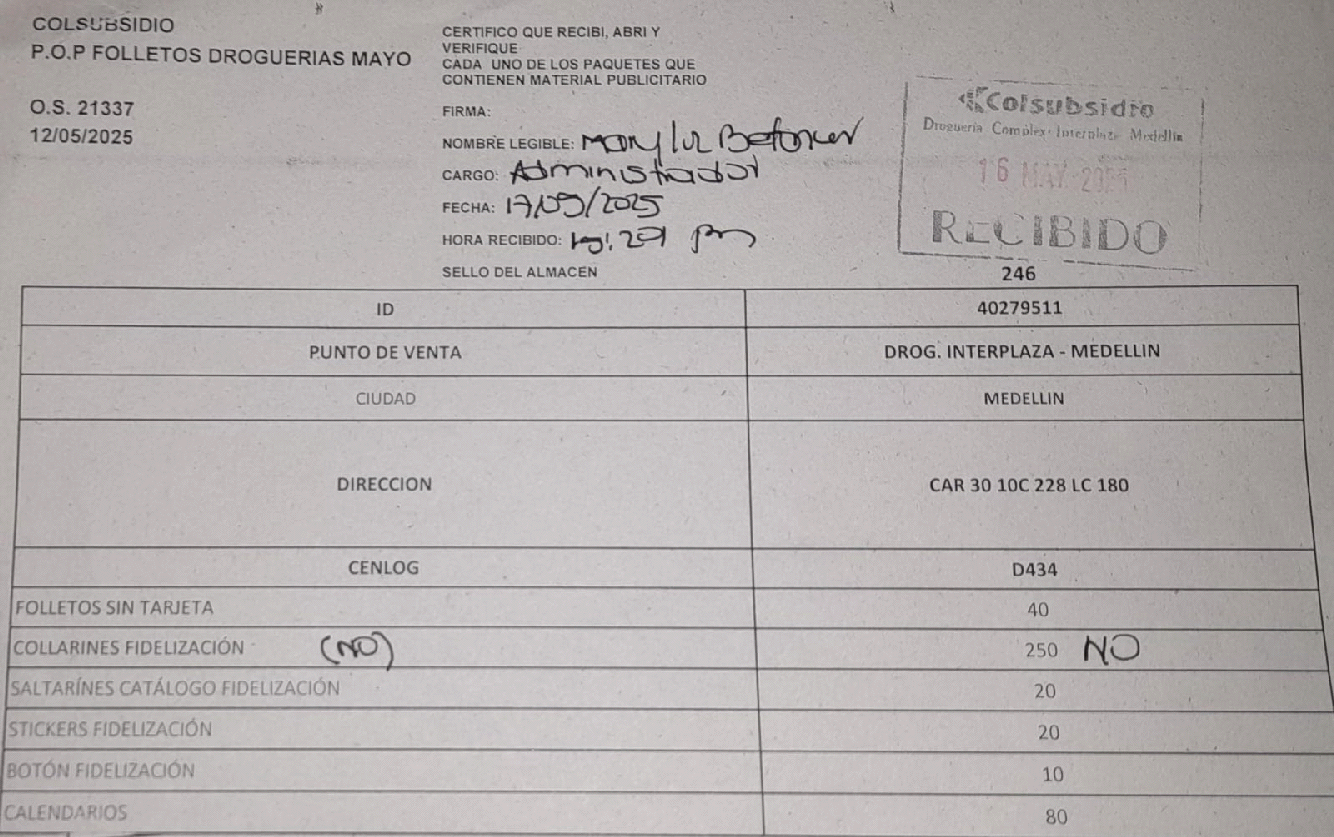 COLSUBSIDIO
P.O.P FOLLETOS DROGUERIAS MAYO
O.S. 21337
12/05/2025
CERTIFICO QUE RECIBI, ABRI Y
VERIFIQUE
CADA UNO DE LOS PAQUETES QUE
CONTIENEN MATERIAL PUBLICITARIO
FIRMA:
NOMBRE LEGIBLE:
CARGO: Administrador
FECHA: 17/05/2025
HORA RECIBIDO: pm
SELLO DEL ALMACEN
Colsubsidio
Droguería Complex Interplaza Medellín
16 MAY 2025
RECIBIDO
246
ID 40279511
PUNTO DE VENTA DROG. INTERPLAZA - MEDELLIN
CIUDAD MEDELLIN
DIRECCION CAR 30 10C 228 LC 180
CENLOG D434
FOLLETOS SIN TARJETA 40
COLLARINES FIDELIZACIÓN (NO) 250 NO
SALTARÍNES CATÁLOGO FIDELIZACIÓN 20
STICKERS FIDELIZACIÓN 20
BOTÓN FIDELIZACIÓN 10
CALENDARIOS 80